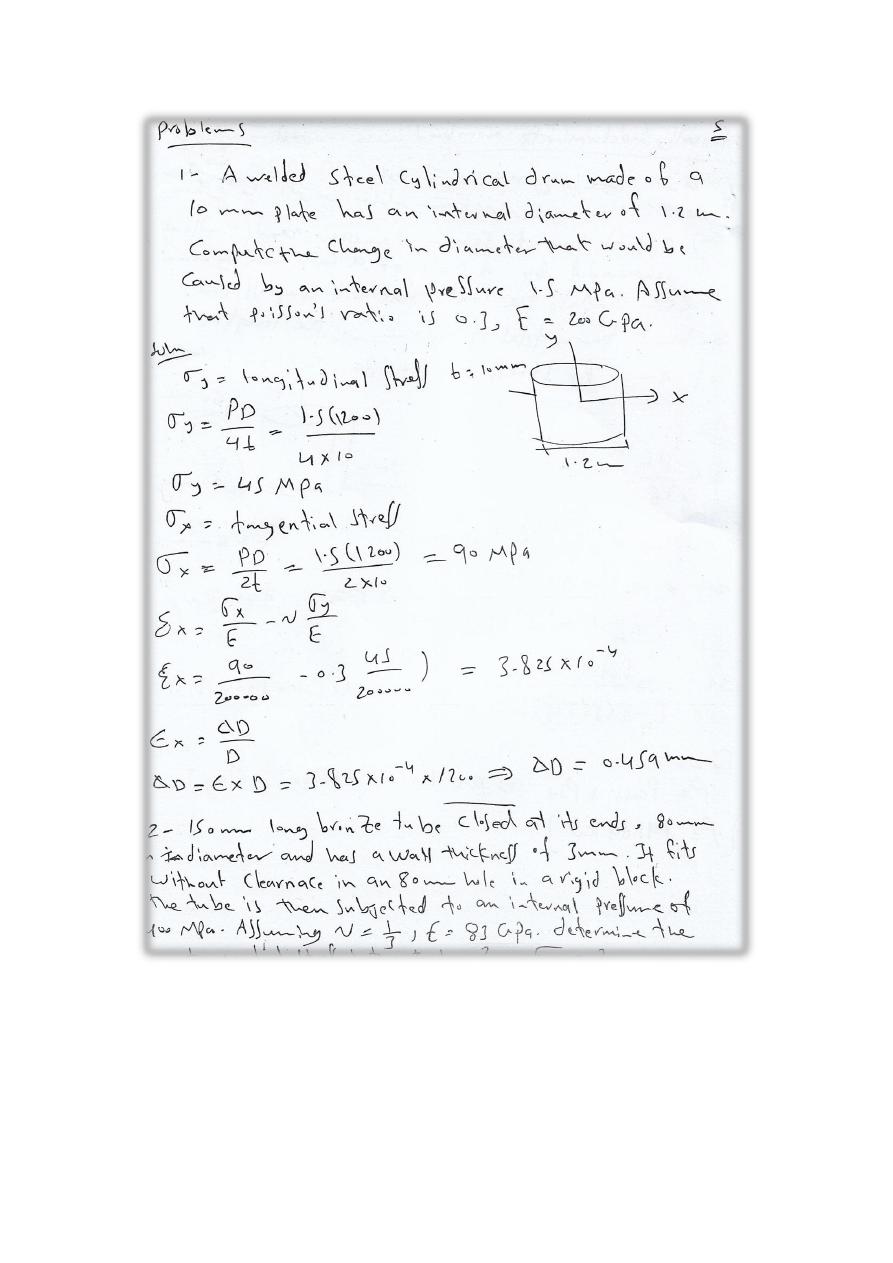 Problems
5
1- A welded steel cylindrical drum made of a
10 mm plate has an internal diameter of 1.2 m.
Compute the change in diameter that would be
caused by an internal pressure 1.5 MPa. Assume
that poisson's ratio is 0.3, E = 200 Gpa.
Soln
y
x
1.2 m
σy = longitudinal stress t = 10mm
σy = PD/4t = 1.5(1200)/4×10
σy = 45 MPa
σx = tangential stress
σx = PD/2t = 1.5(1200)/2×10 = 90 MPa
εx = σx/E - ν σy/E
εx = 90/200000 - 0.3 45/200000 ) = 3.825×10⁻⁴
εx = ΔD/D
ΔD = εx D = 3.825×10⁻⁴ × 1200 ⇒ ΔD = 0.459 mm
2- 150 mm long bronze tube closed at its ends, 80mm
in diameter and has a wall thickness of 3mm. It fits
without clearnace in an 80mm hole in a rigid block.
the tube is then subjected to an internal pressure of
400 MPa. Assuming ν = 1/3, E = 83 Gpa. determine the